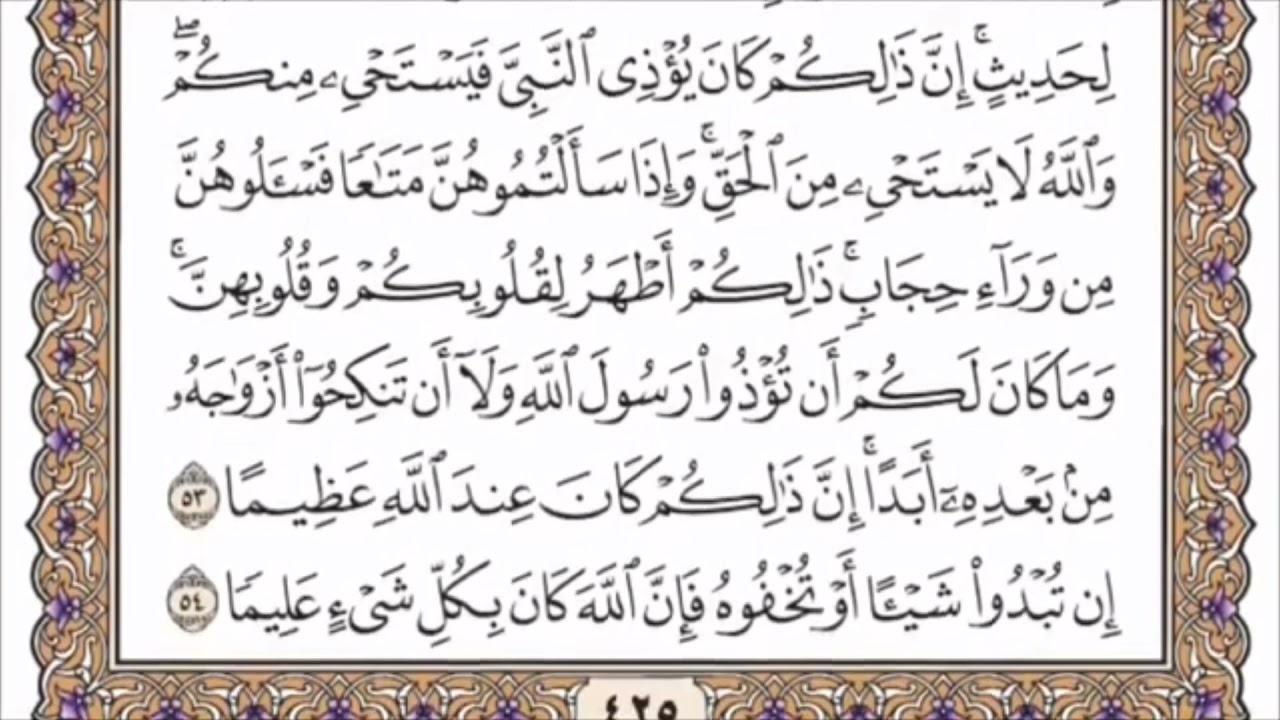 لِحَدِيثٍ ۚ إِنَّ ذَٰلِكُمْ كَانَ يُؤْذِى ٱلنَّبِىَّ فَيَسْتَحْىِۦ مِنكُمْ ۖ
وَٱللَّهُ لَا يَسْتَحْىِۦ مِنَ ٱلْحَقِّ ۚ وَإِذَا سَأَلْتُمُوهُنَّ مَتَٰعًا فَسْـَٔلُوهُنَّ
مِن وَرَآءِ حِجَابٍ ۚ ذَٰلِكُمْ أَطْهَرُ لِقُلُوبِكُمْ وَقُلُوبِهِنَّ ۚ
وَمَا كَانَ لَكُمْ أَن تُؤْذُوا۟ رَسُولَ ٱللَّهِ وَلَآ أَن تَنكِحُوٓا۟ أَزْوَٰجَهُۥ
مِنۢ بَعْدِهِۦٓ أَبَدًا ۚ إِنَّ ذَٰلِكُمْ كَانَ عِندَ ٱللَّهِ عَظِيمًا ٥٣
إِن تُبْدُوا۟ شَيْـًٔا أَوْ تُخْفُوهُ فَإِنَّ ٱللَّهَ كَانَ بِكُلِّ شَىْءٍ عَلِيمًا ٥٤
٤٢٥